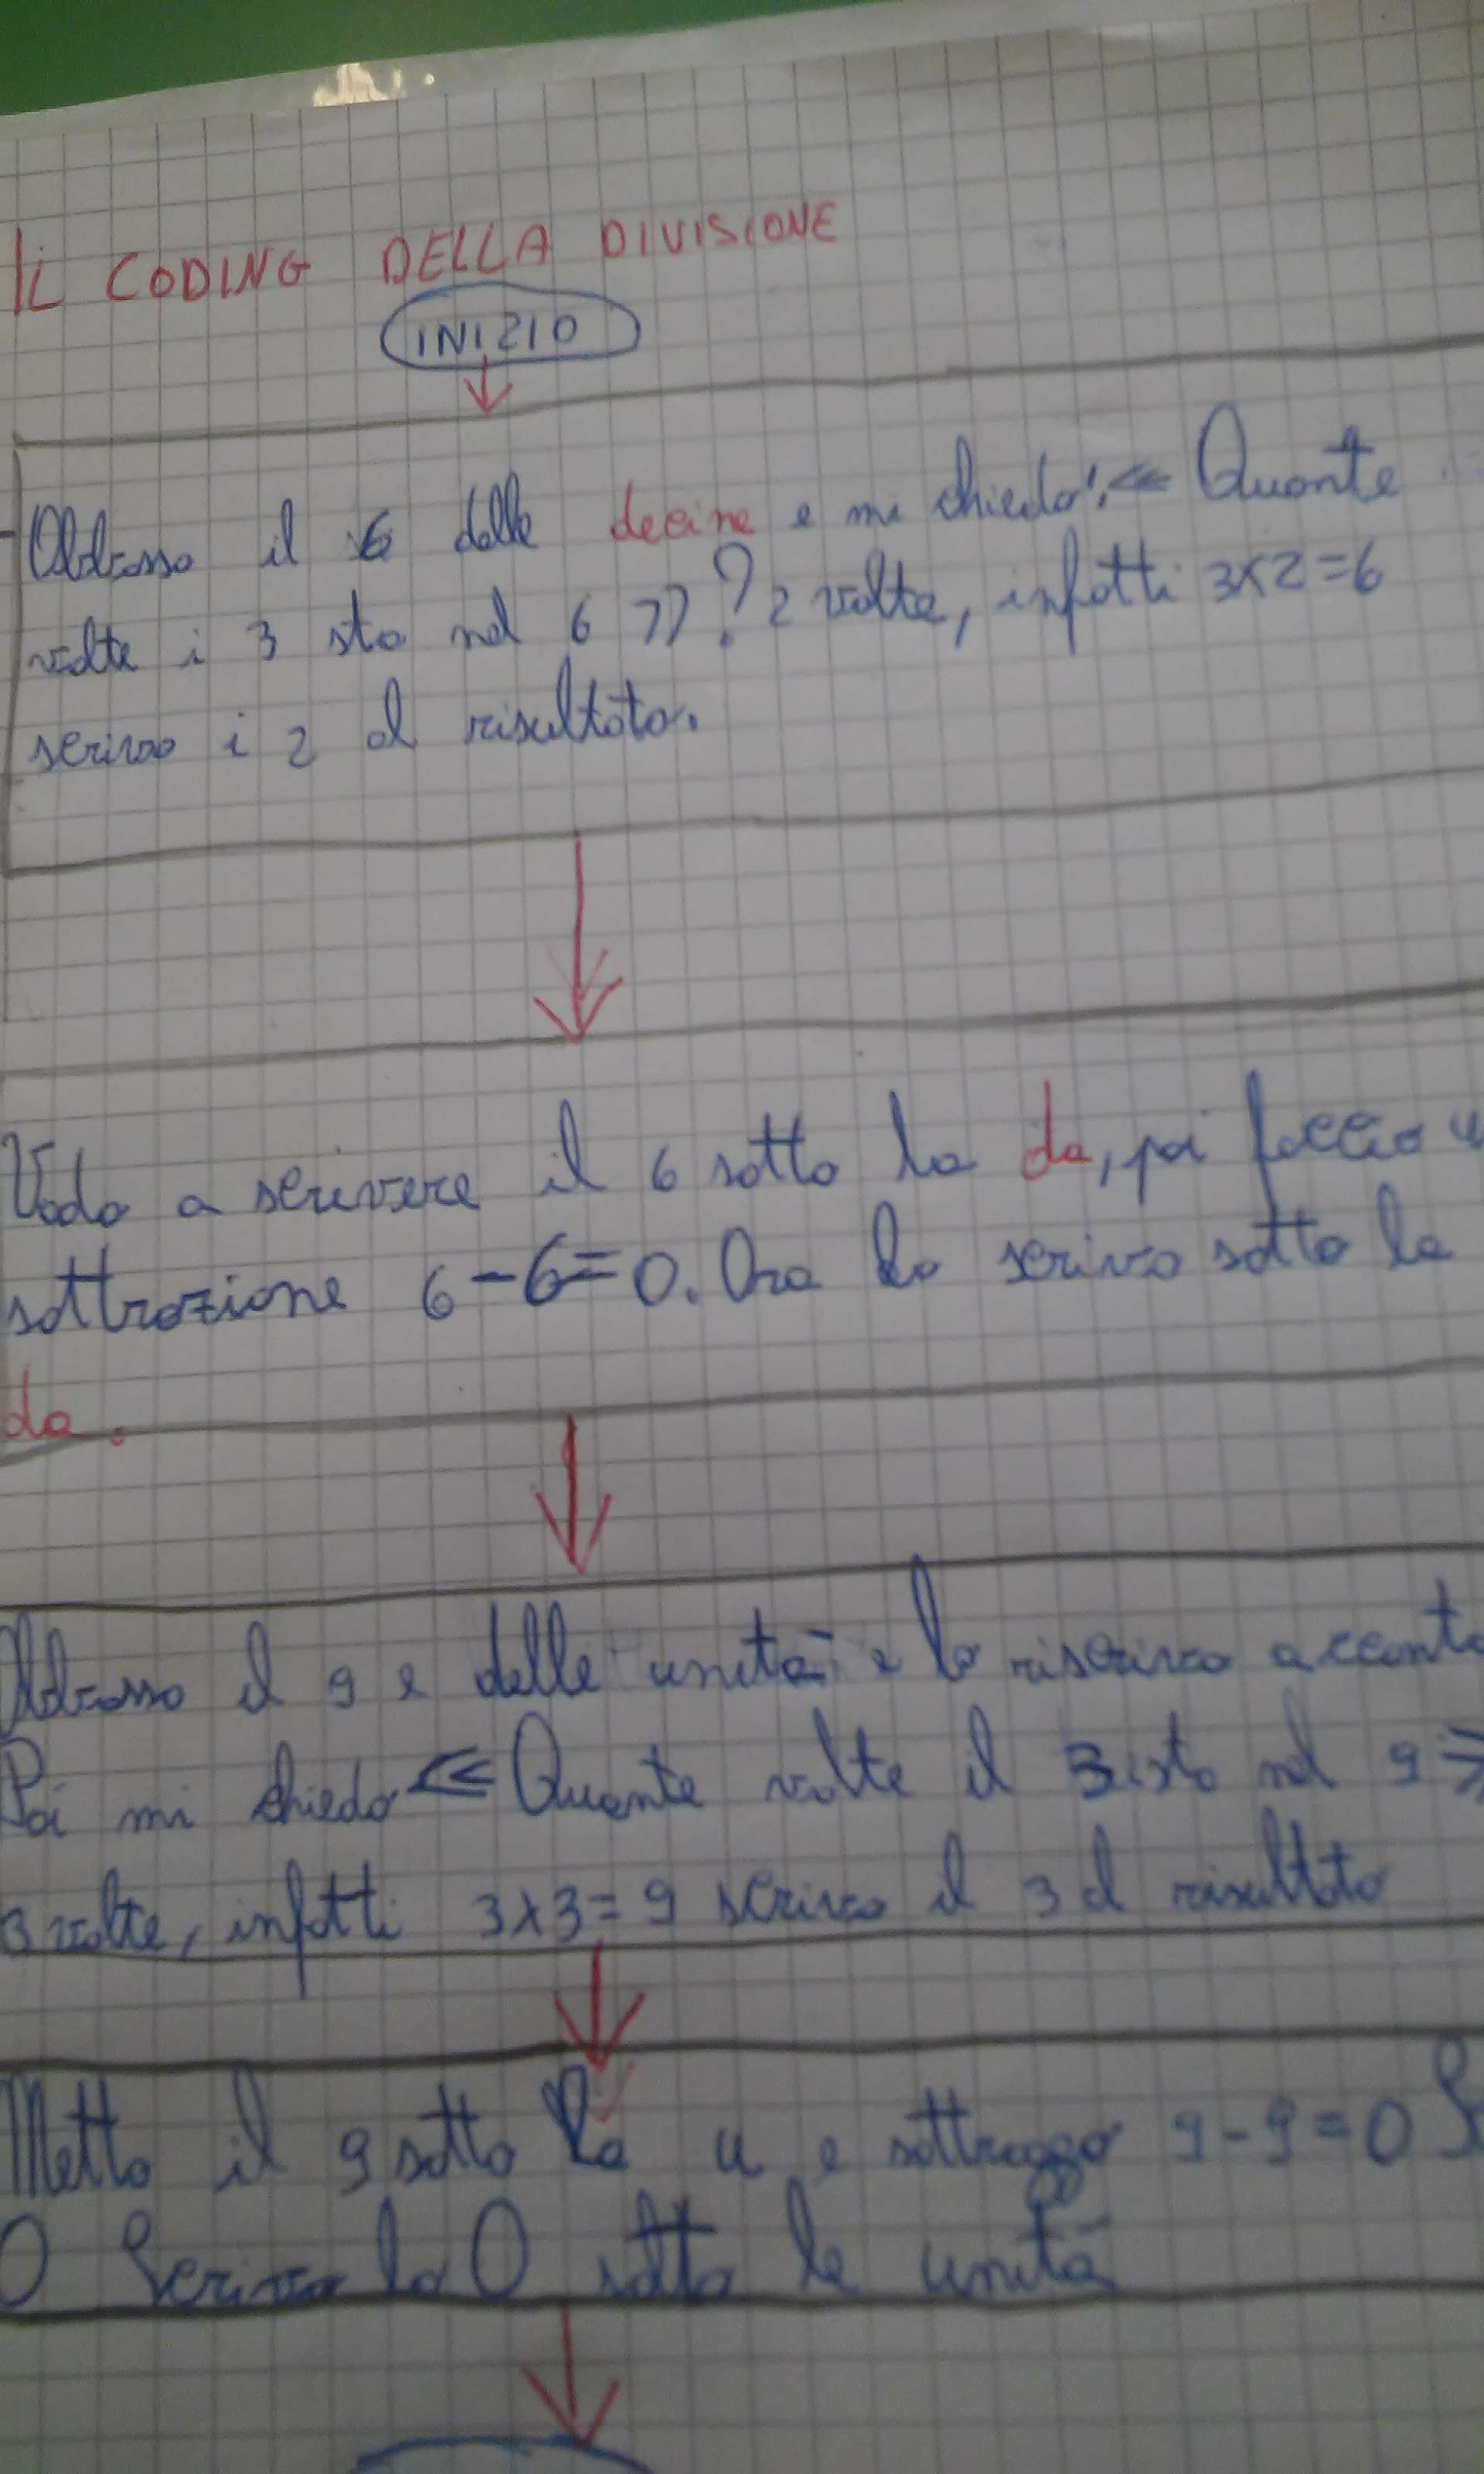 IL CODING DELLA DIVISIONE
INIZIO
Abbasso il 6 delle decine e mi chiedo: << Quante
volte i 3 sta nel 6 >>? 2 volte, infatti 3x2=6
scrivo i 2 al risultato.
Vado a scrivere il 6 sotto la da, poi faccio
sottrazione 6-6=0. Ora lo scrivo sotto le
da.
Abbasso il 9 e delle unità e lo riscrivo accanto
Poi mi chiedo << Quante volte il 3 sta nel 9 >>
3 volte, infatti 3x3=9 scrivo il 3 al risultato
Metto il 9 sotto la u e sottraggo 9-9=0
0 Scrivo lo 0 sotto le unità